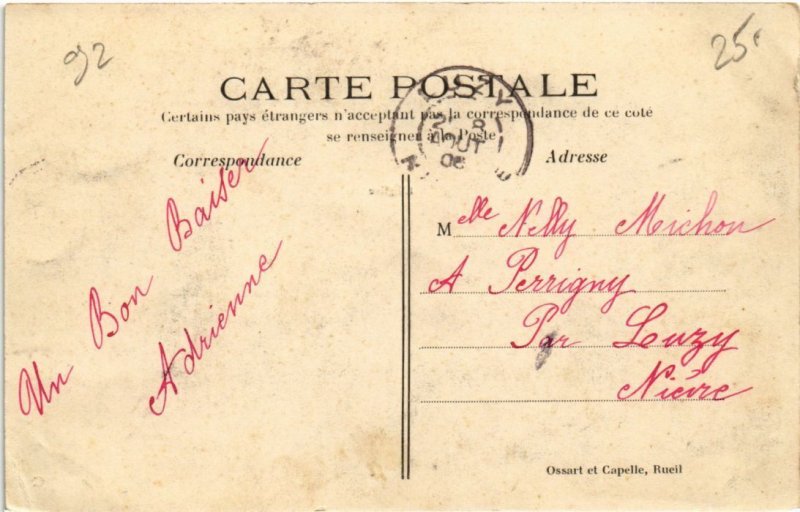 92
25
CARTE POSTALE
Certains pays étrangers n'acceptant pas la correspondance de ce coté
se renseigner à la Poste
Correspondance
Adresse
Un Bon Baiser
Adrienne
Melle Nelly Michon
A Perrigny
Par Luzy
Nièvre
21 8
AOUT
06
Ossart et Capelle, Rueil